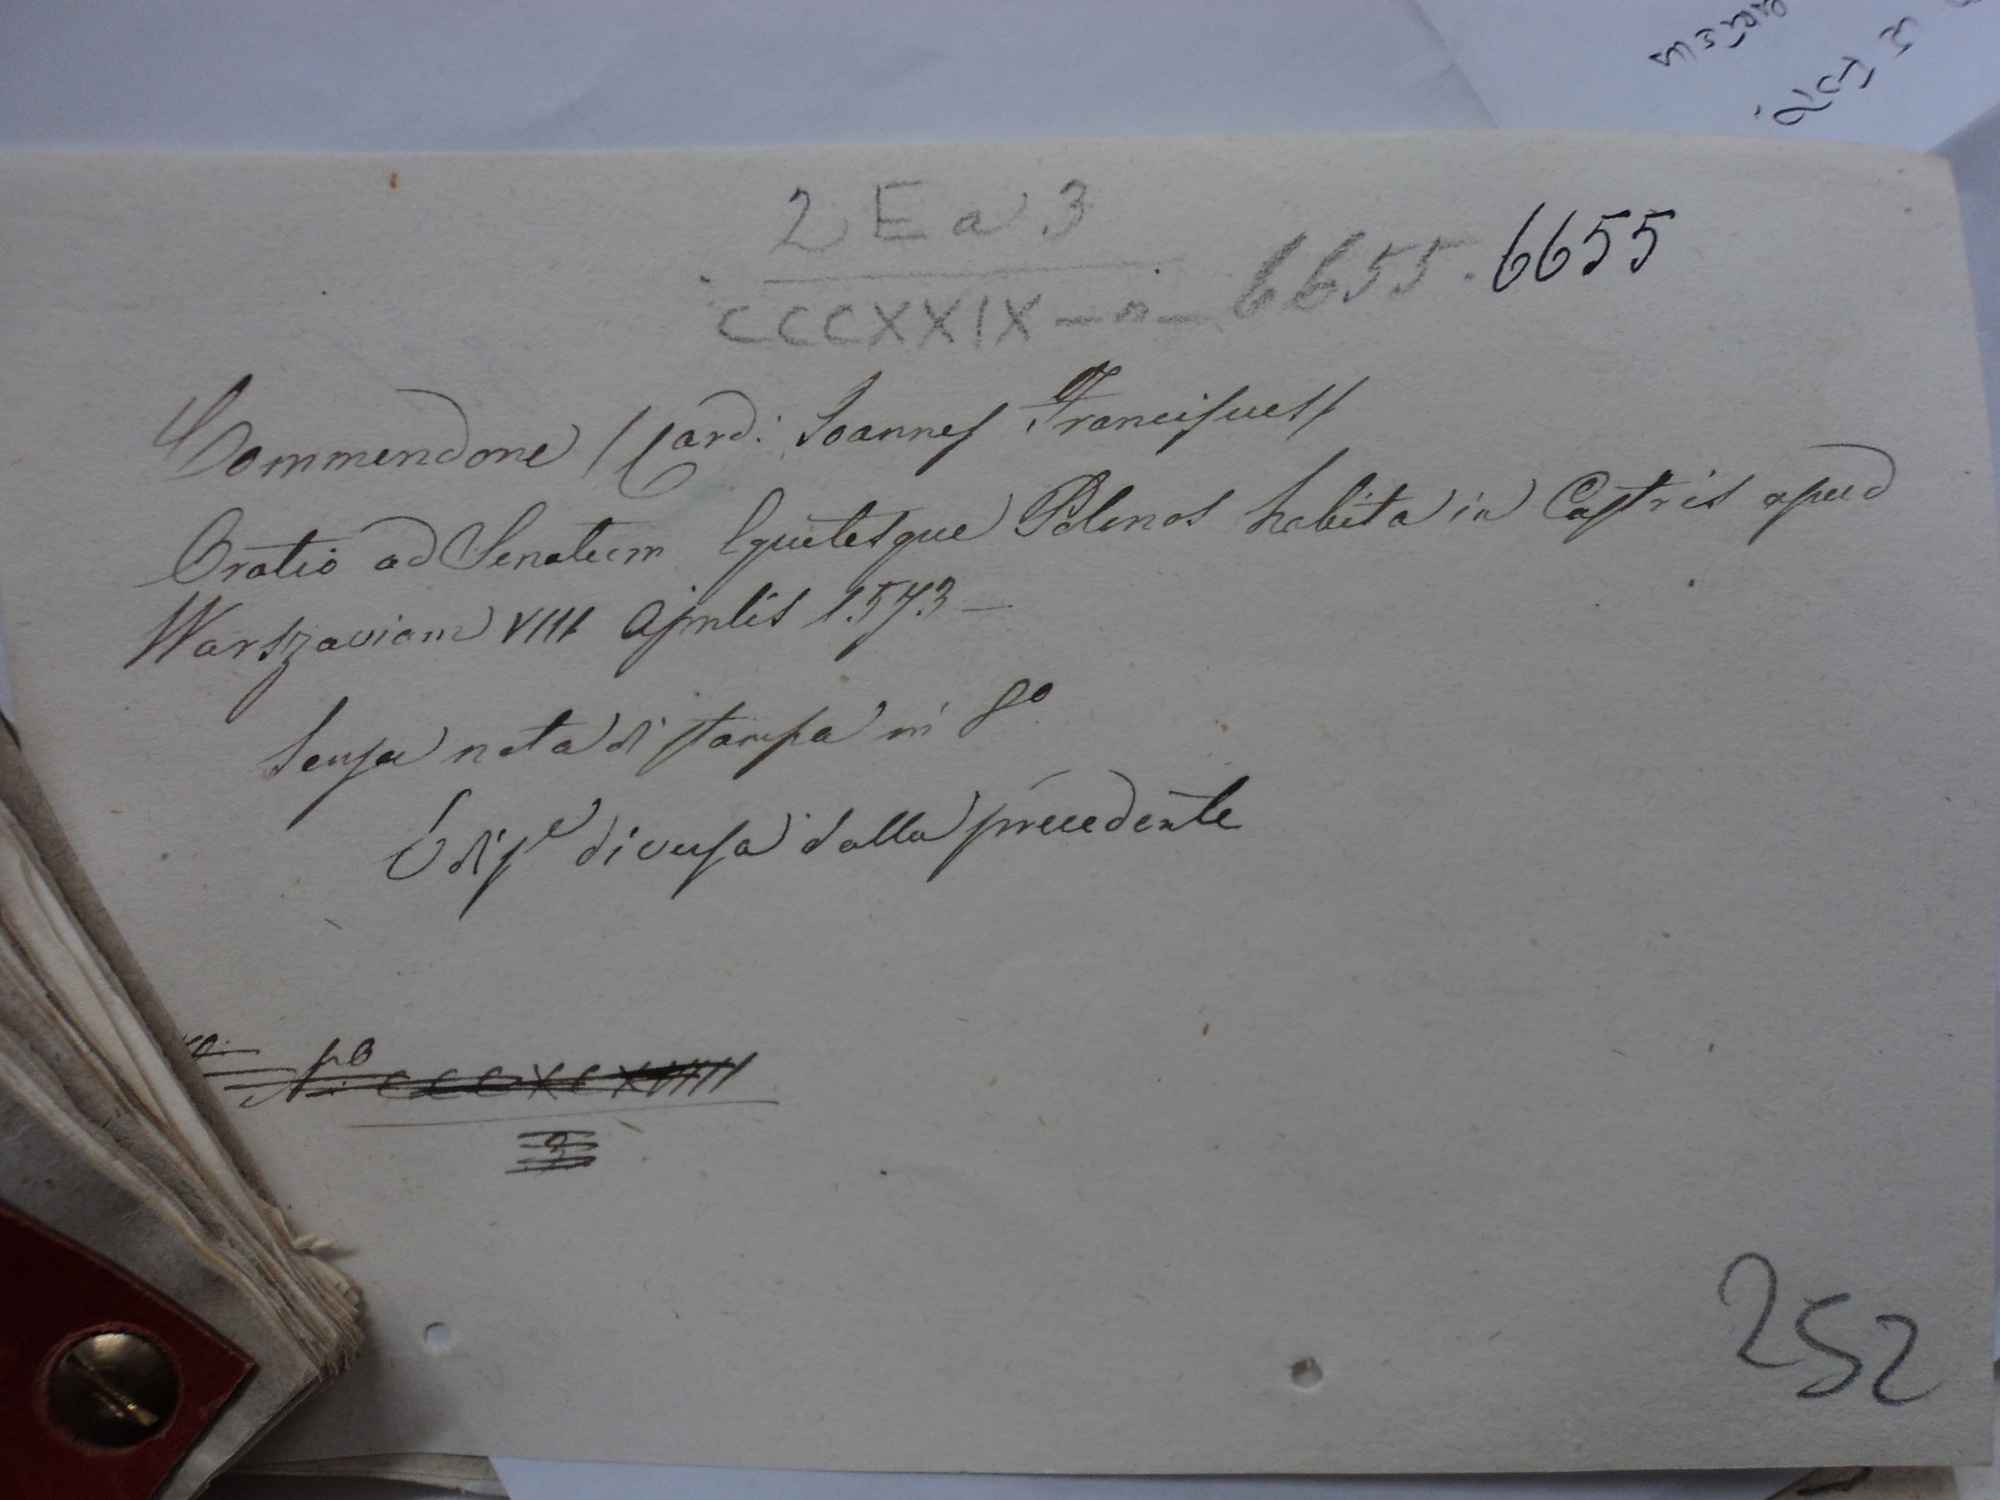 2 E a 3
CCCXXIX - n - 6655. 6655
Commendone / Card: Ioannes Franciscus /
Oratio ad Senatum Equitesque Polonos habita in Castris apud
Warszaviam VIII Aprilis 1573 —
Senza nota di stampa in 8o
Ediz.e diversa dalla precedente
3
252